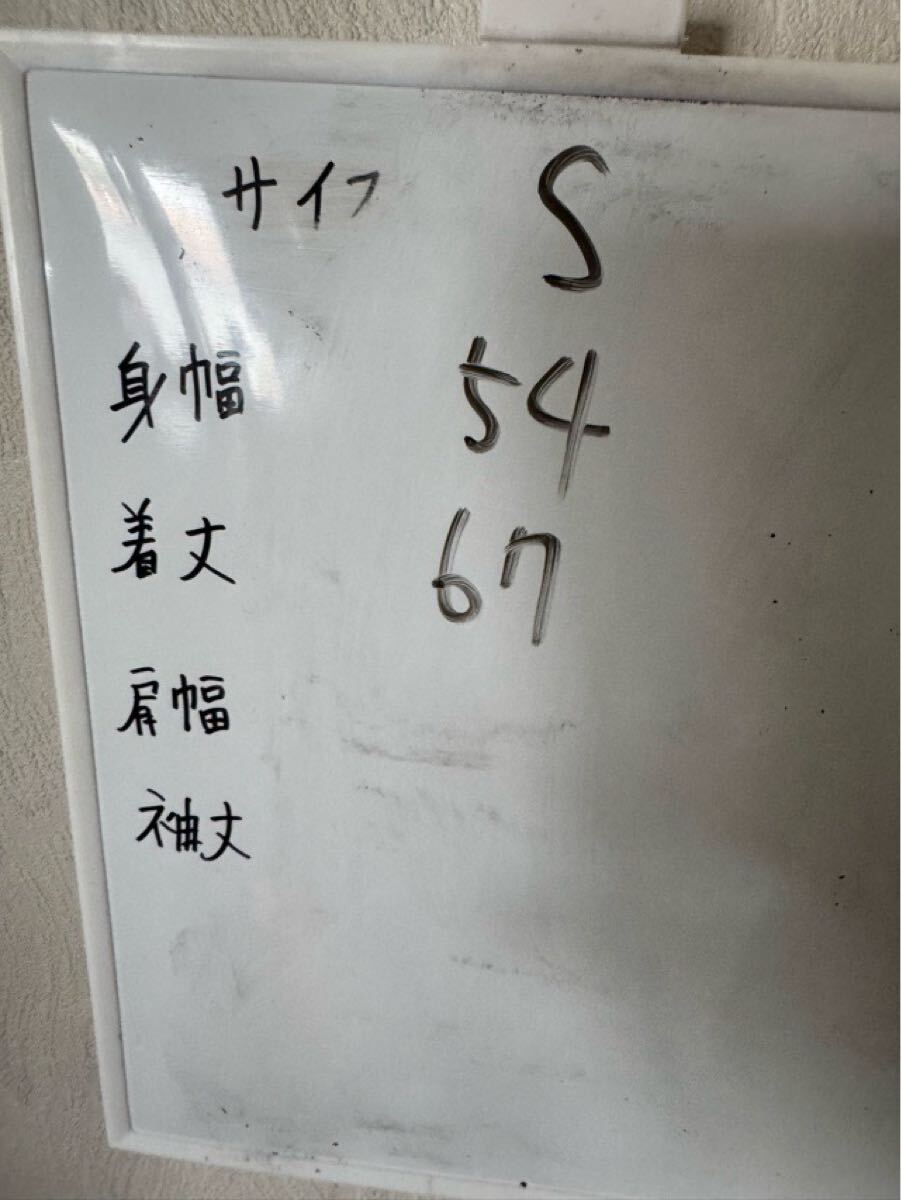 サイフ S
身幅 54
着丈 67
肩幅
袖丈